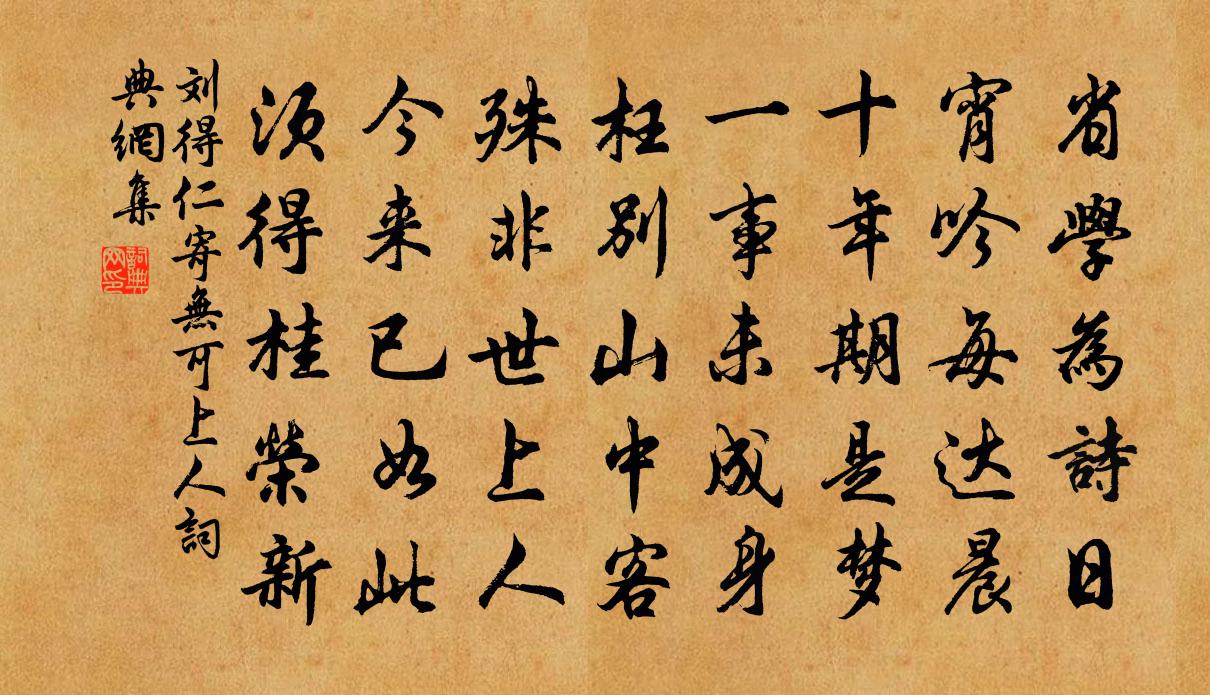 省學為詩日
宵吟每达晨
十年期是梦
一事未成身
枉别山中客
殊非世上人
今来已如此
须得桂荣新
刘得仁寄無可上人詞
典網集
詞典
网印